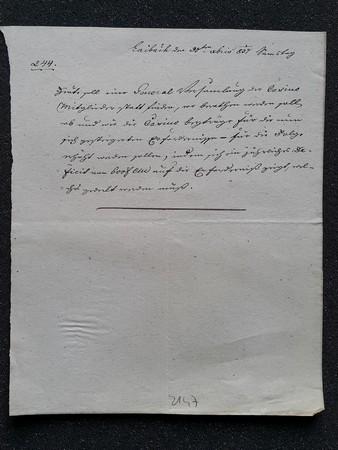 Laibach den 30ten März 857 Samstag
244.
Heute soll eine General Versammlung der Casino
Mitglieder statt finden, wo berathen werden solle,
ob und wie die Casino beyträge für die nun
sich gesteigerten Erfordernisse für die Folge
erhöht werden sollen, indem sich ein jährliches De-
ficit von 600 f CM auf die Erforderniß zeigt, wel-
ches gedeckt werden muß.
2147